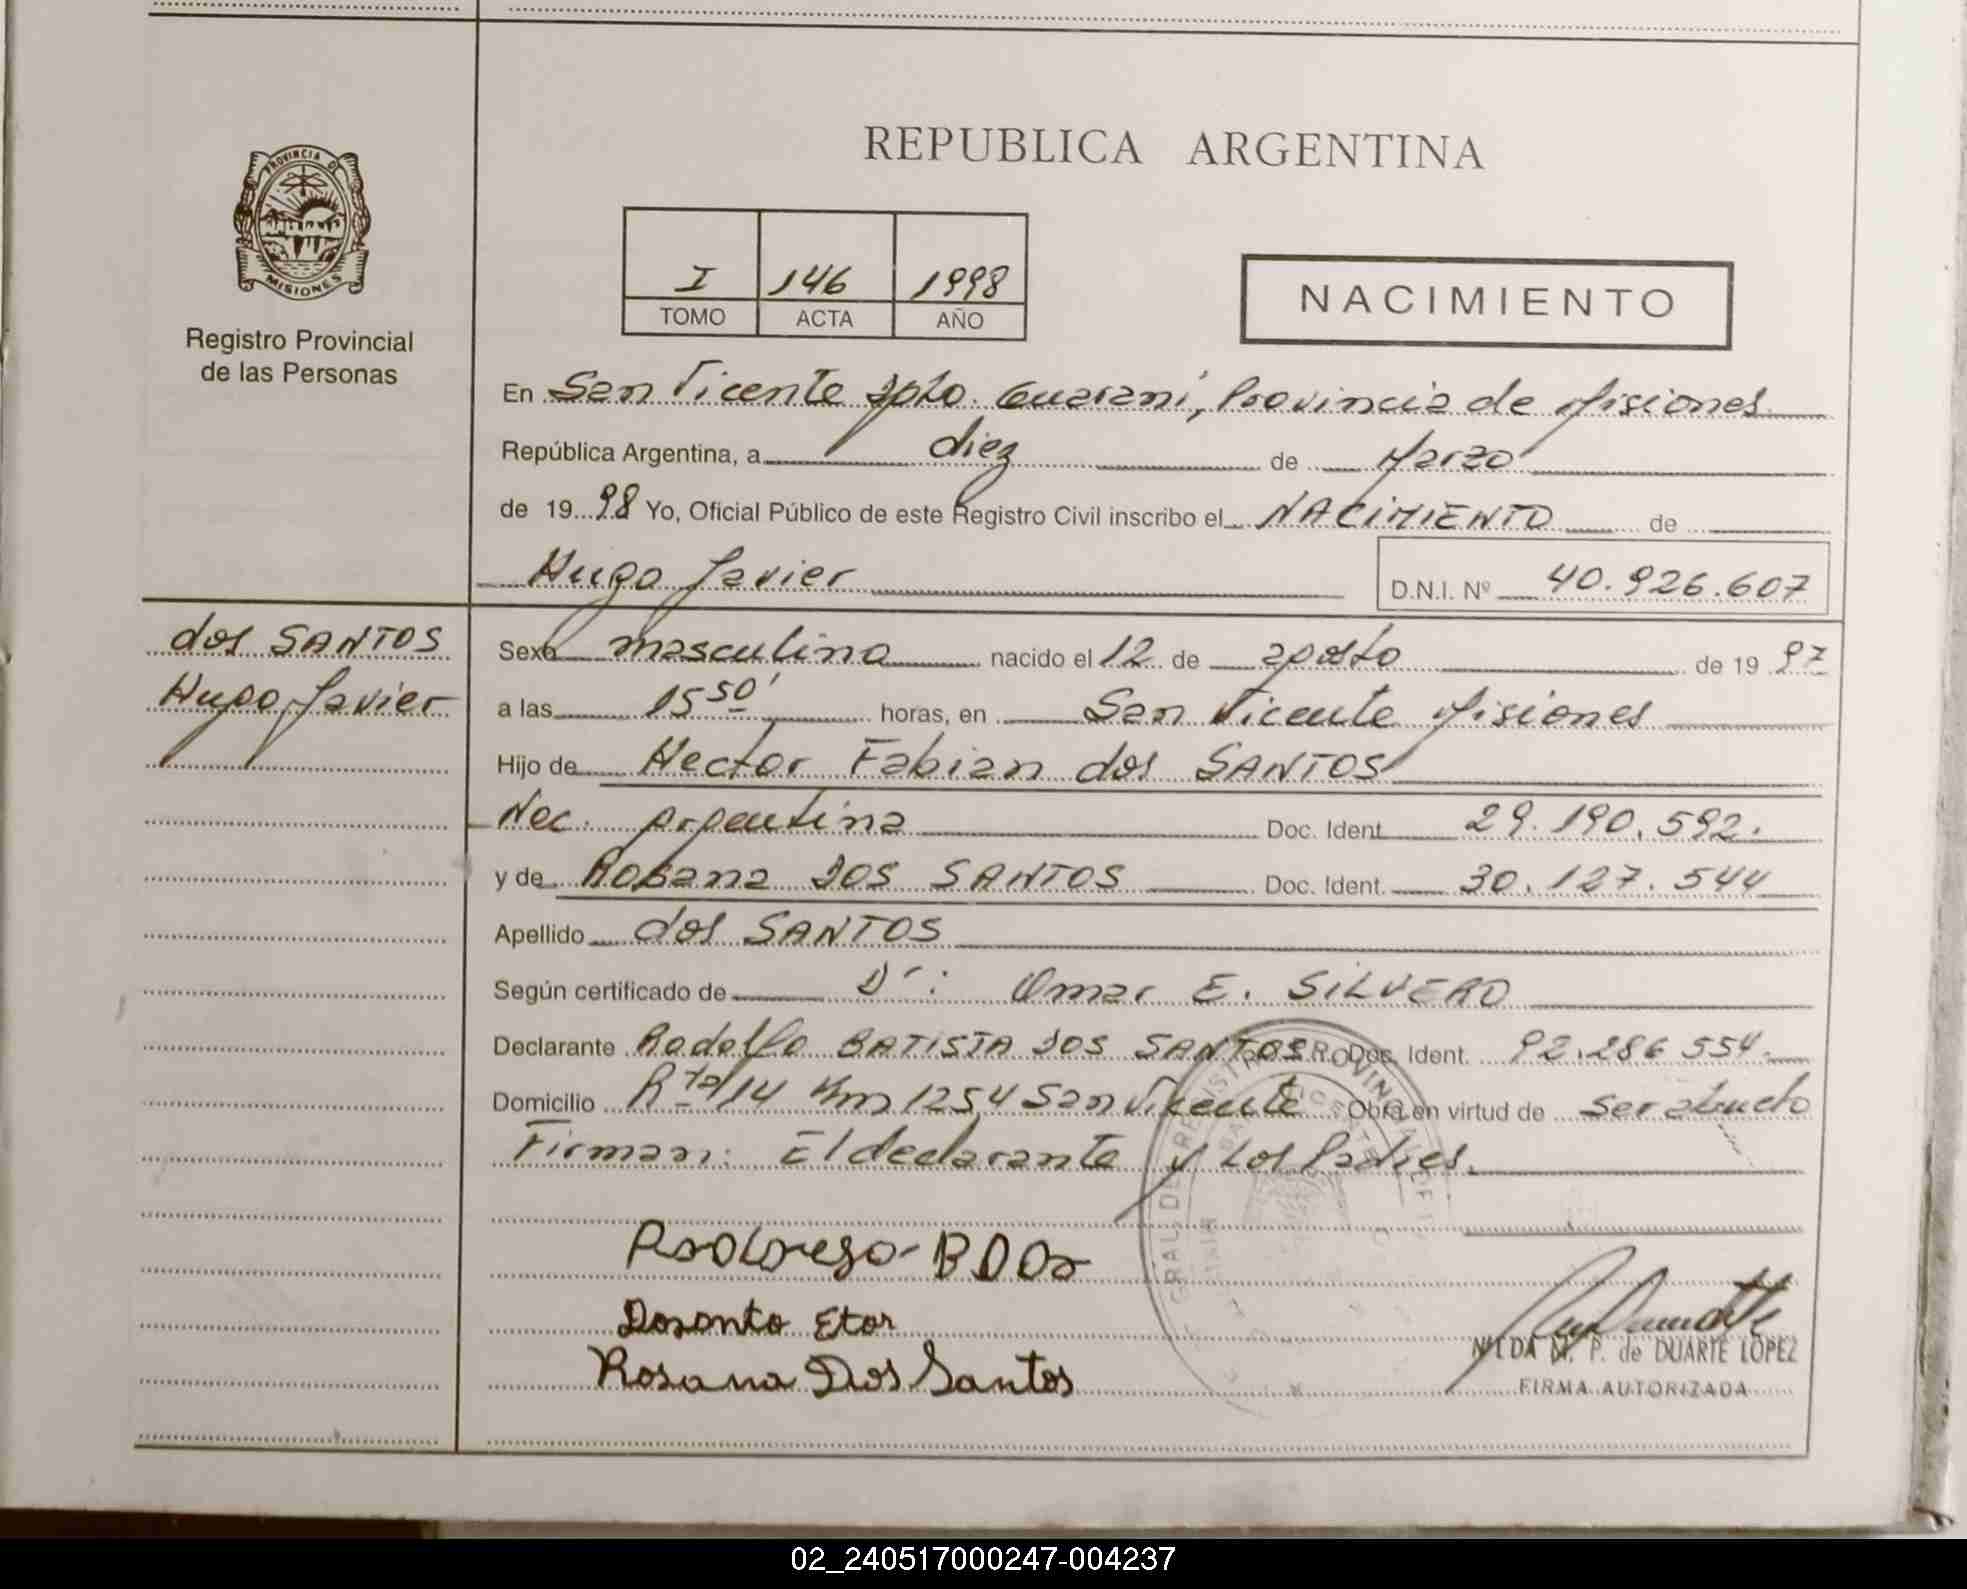 REPUBLICA ARGENTINA
PROVINCIA DE
MISIONES
Registro Provincial
de las Personas
I 146 1998
TOMO ACTA AÑO
NACIMIENTO
En San Vicente Dpto. Guarani, Provincia de Misiones
República Argentina, a diez de Marzo
de 19 98 Yo, Oficial Público de este Registro Civil inscribo el NACIMIENTO de
Hugo Javier D.N.I. Nº 40.926.607
dos SANTOS
Hugo Javier
Sexo masculino nacido el 12 de agosto de 19 97
a las 15 50' horas, en San Vicente Misiones
Hijo de Hector Fabian dos SANTOS
Nac. Argentina Doc. Ident. 29.190.592.
y de Rosana DOS SANTOS Doc. Ident. 30.127.544
Apellido dos SANTOS
Según certificado de Dr: Omar E. SILVERO
Declarante Rodolfo BATISTA DOS SANTOS Doc. Ident. 92.286 554.
Domicilio Rta 14 Km 1254 San Vicente Obra en virtud de ser abuelo
Firman: El declarante y Los Padres.
Dosanto Etor
Rosana Dos Santos
NILDA M. P. de DUARTE LOPEZ
FIRMA AUTORIZADA
02_240517000247-004237